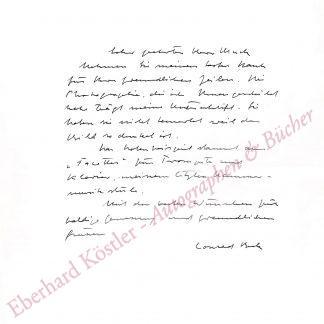 Sehr geehrter Herr
Nehmen Sie meinen besten Dank
für Ihre freundlichen Zeilen. Die
Photographie, die ich Ihnen geschickt
habe trägt meine Unterschrift. Sie
haben sie nicht bemerkt weil das
Bild so dunkel ist.
Das Notenbeispiel stammt aus
"Facettes" für Trompete und
Klavier, meinem
Mit den besten Wünschen für
baldige Genesung und freundlichen
Grüssen
Conrad Beck
Eberhard Köstler - Autographen & Bücher